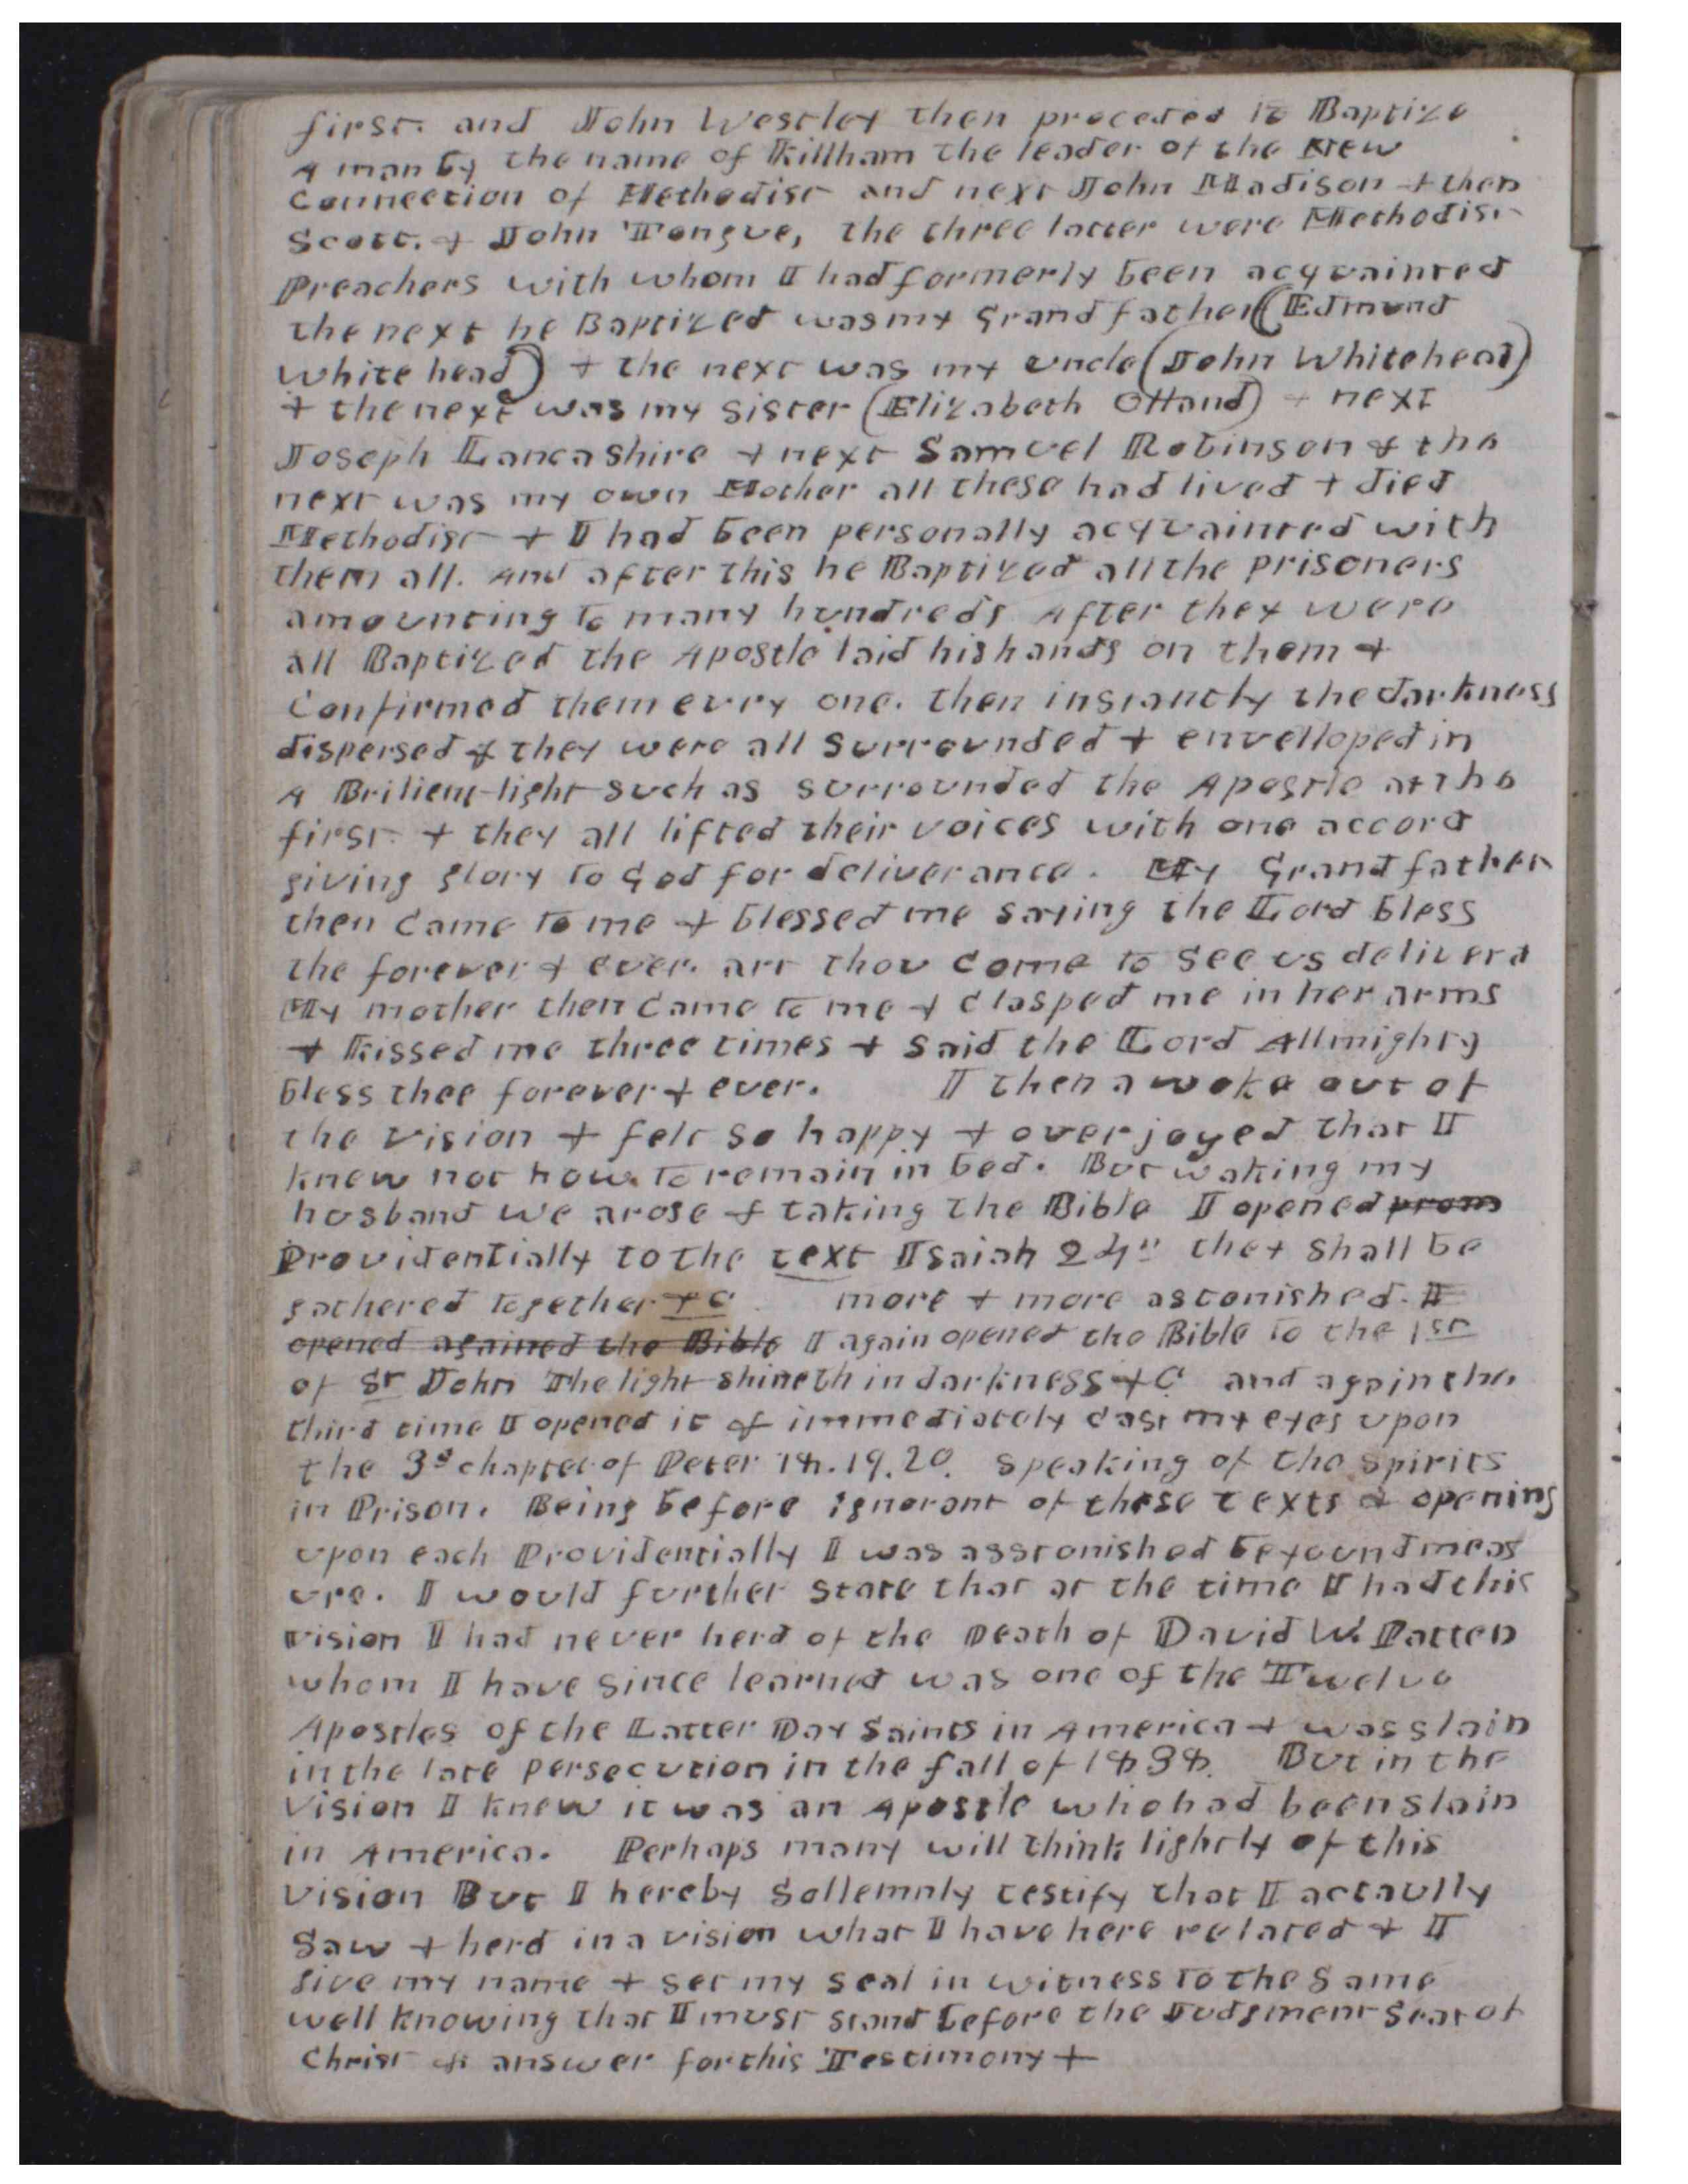 first. and John Westley then proceded to Baptize
A man by the name of Killham the leader of the New
Connection of Methodist and next John Madison + then
Scott. + John Tongue, the three latter were Methodist
Preachers with whom I had formerly been acquainted
the next he Baptized was my Grand father (Edmund
White head) + the next was my uncle (John Whitehead)
+ the next was my sister (Elizabeth Olland) + next
Joseph Lancashire + next Samuel Robinson & the
next was my own Mother all these had lived + died
Methodist + I had been personally acquainted with
them all. And after this he Baptized all the prisoners
amounting to many hundreds After they were
all Baptized the Apostle laid his hands on them +
Confirmed them evry one. then instantly the darkness
dispersed & they were all Surrounded + envelloped in
A Brilient light such as surrounded the Apostle at the
first + they all lifted their voices with one accord
giving glory to God for deliverance. My Grand father
then Came to me + blessed me saying the Lord bless
the forever + ever. art thou Come to See us deliverd
My mother then Came to me + Clasped me in her arms
+ Kissed me three times + Said the Lord Allmighty
bless thee forever + ever. I then awoke out of
the Vision + felt so happy + over joyed that I
knew not how to remain in bed. But waking my
husband we arose & taking the Bible I opened prom
Providentially to the text Isaiah 24" they Shall be
gathered together +C more + more astonished. I
opened agained the Bible I again opened the Bible to the 1st
of St John The light shineth in darkness +C and again the
third time I opened it & immediately Cast my eyes upon
the 3d chapter of Peter 18.19.20. Speaking of the spirits
in Prison. Being before ignorant of these texts & opening
upon each Providentially I was asstonished beyound meas
ure. I would further State that at the time I had this
vision I had never herd of the Death of David W. Patten
whom I have Since learned was one of the Twelve
Apostles of the Latter Day Saints in America + was slain
in the late persecution in the fall of 1838. But in the
Vision I knew it was an Apostle who had been slain
in America. Perhaps many will think lightly of this
Vision But I hereby Sollemnly testify that I actaully
Saw + herd in a vision what I have here related + I
give my name + set my seal in witness to the Same
well knowing that I must stand before the Judgment Seat of
Christ & answer for this Testimony +